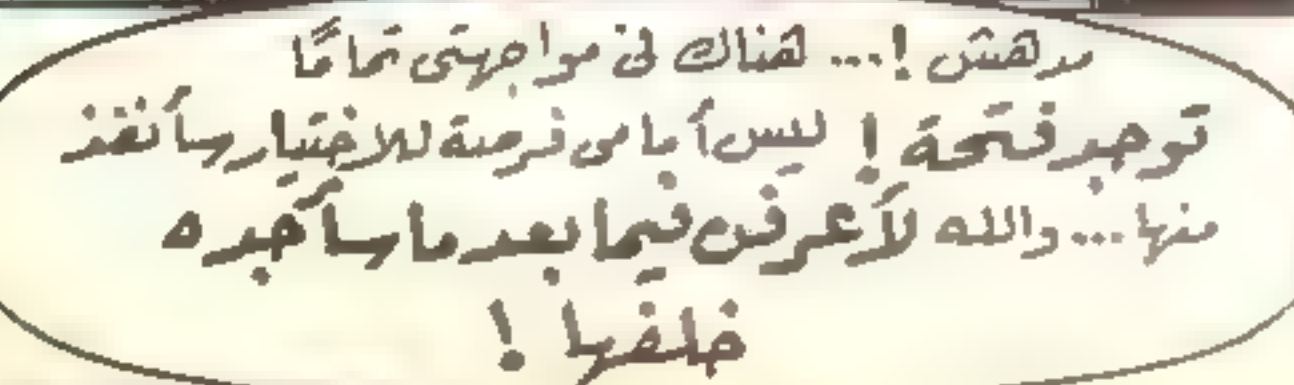 مدهش !... هناك في مواجهتى تمامًا
توجد فتحة ! ليس أمامى فرصة للاختيار سأنفذ
منها ... والله لأعرفن فيما بعد ما سأجده
خلفها !